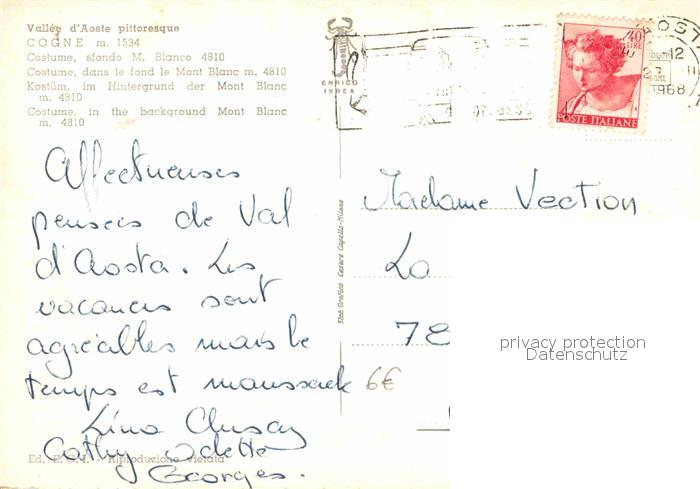 Vallée d'Aoste pittoresque
COGNE m. 1534
Costume, sfondo M. Bianco 4810
Costume, dans le fond le Mont Blanc m. 4810
Kostüm, im Hintergrund der Mont Blanc
m. 4810
Costume, in the background Mont Blanc
m. 4810
ENRICO
IVREA
40
LIRE
POSTE ITALIANE
AOST
12
1968
Affectueuses
pensées de Val
d'Aosta. Les
vacances sont
agréables mais le
temps est maussade
Lina
Cathy Odette
Georges.
6€
Madame Vection
La
78
privacy protection
Datenschutz
Stab Grafico Cesare Capello-Milano
Ed. E.O.I. - Riproduzione vietata